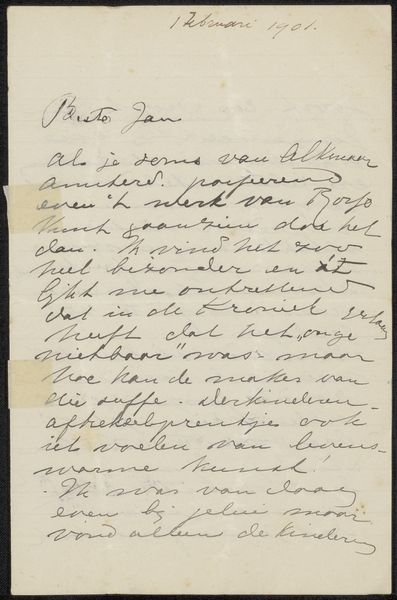 1 Februari 1901.
Beste Jan
als je soms van Alkmaar
Amsterd. passerend
even 't werk van
kunt gaan zien doe het
dan. Ik vind het zoo
heel bizonder en
lijkt me ontzettend
dat in de Kroniek
heeft dat het „onge
nietbaar" was - maar
hoe kan de maker van
die suffe. Derkinderen-
aftreksel prentjes ook
iets voelen van levens-
warme kunst!
Ik was van daag
even bij jelui maar
vond alleen de kinderen